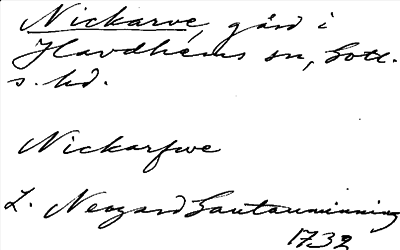 Nickarve, gård i
Havdhems sn, Gotl.
s. hd.
Nickarfwe
L. Neogard Gautauminning
1732